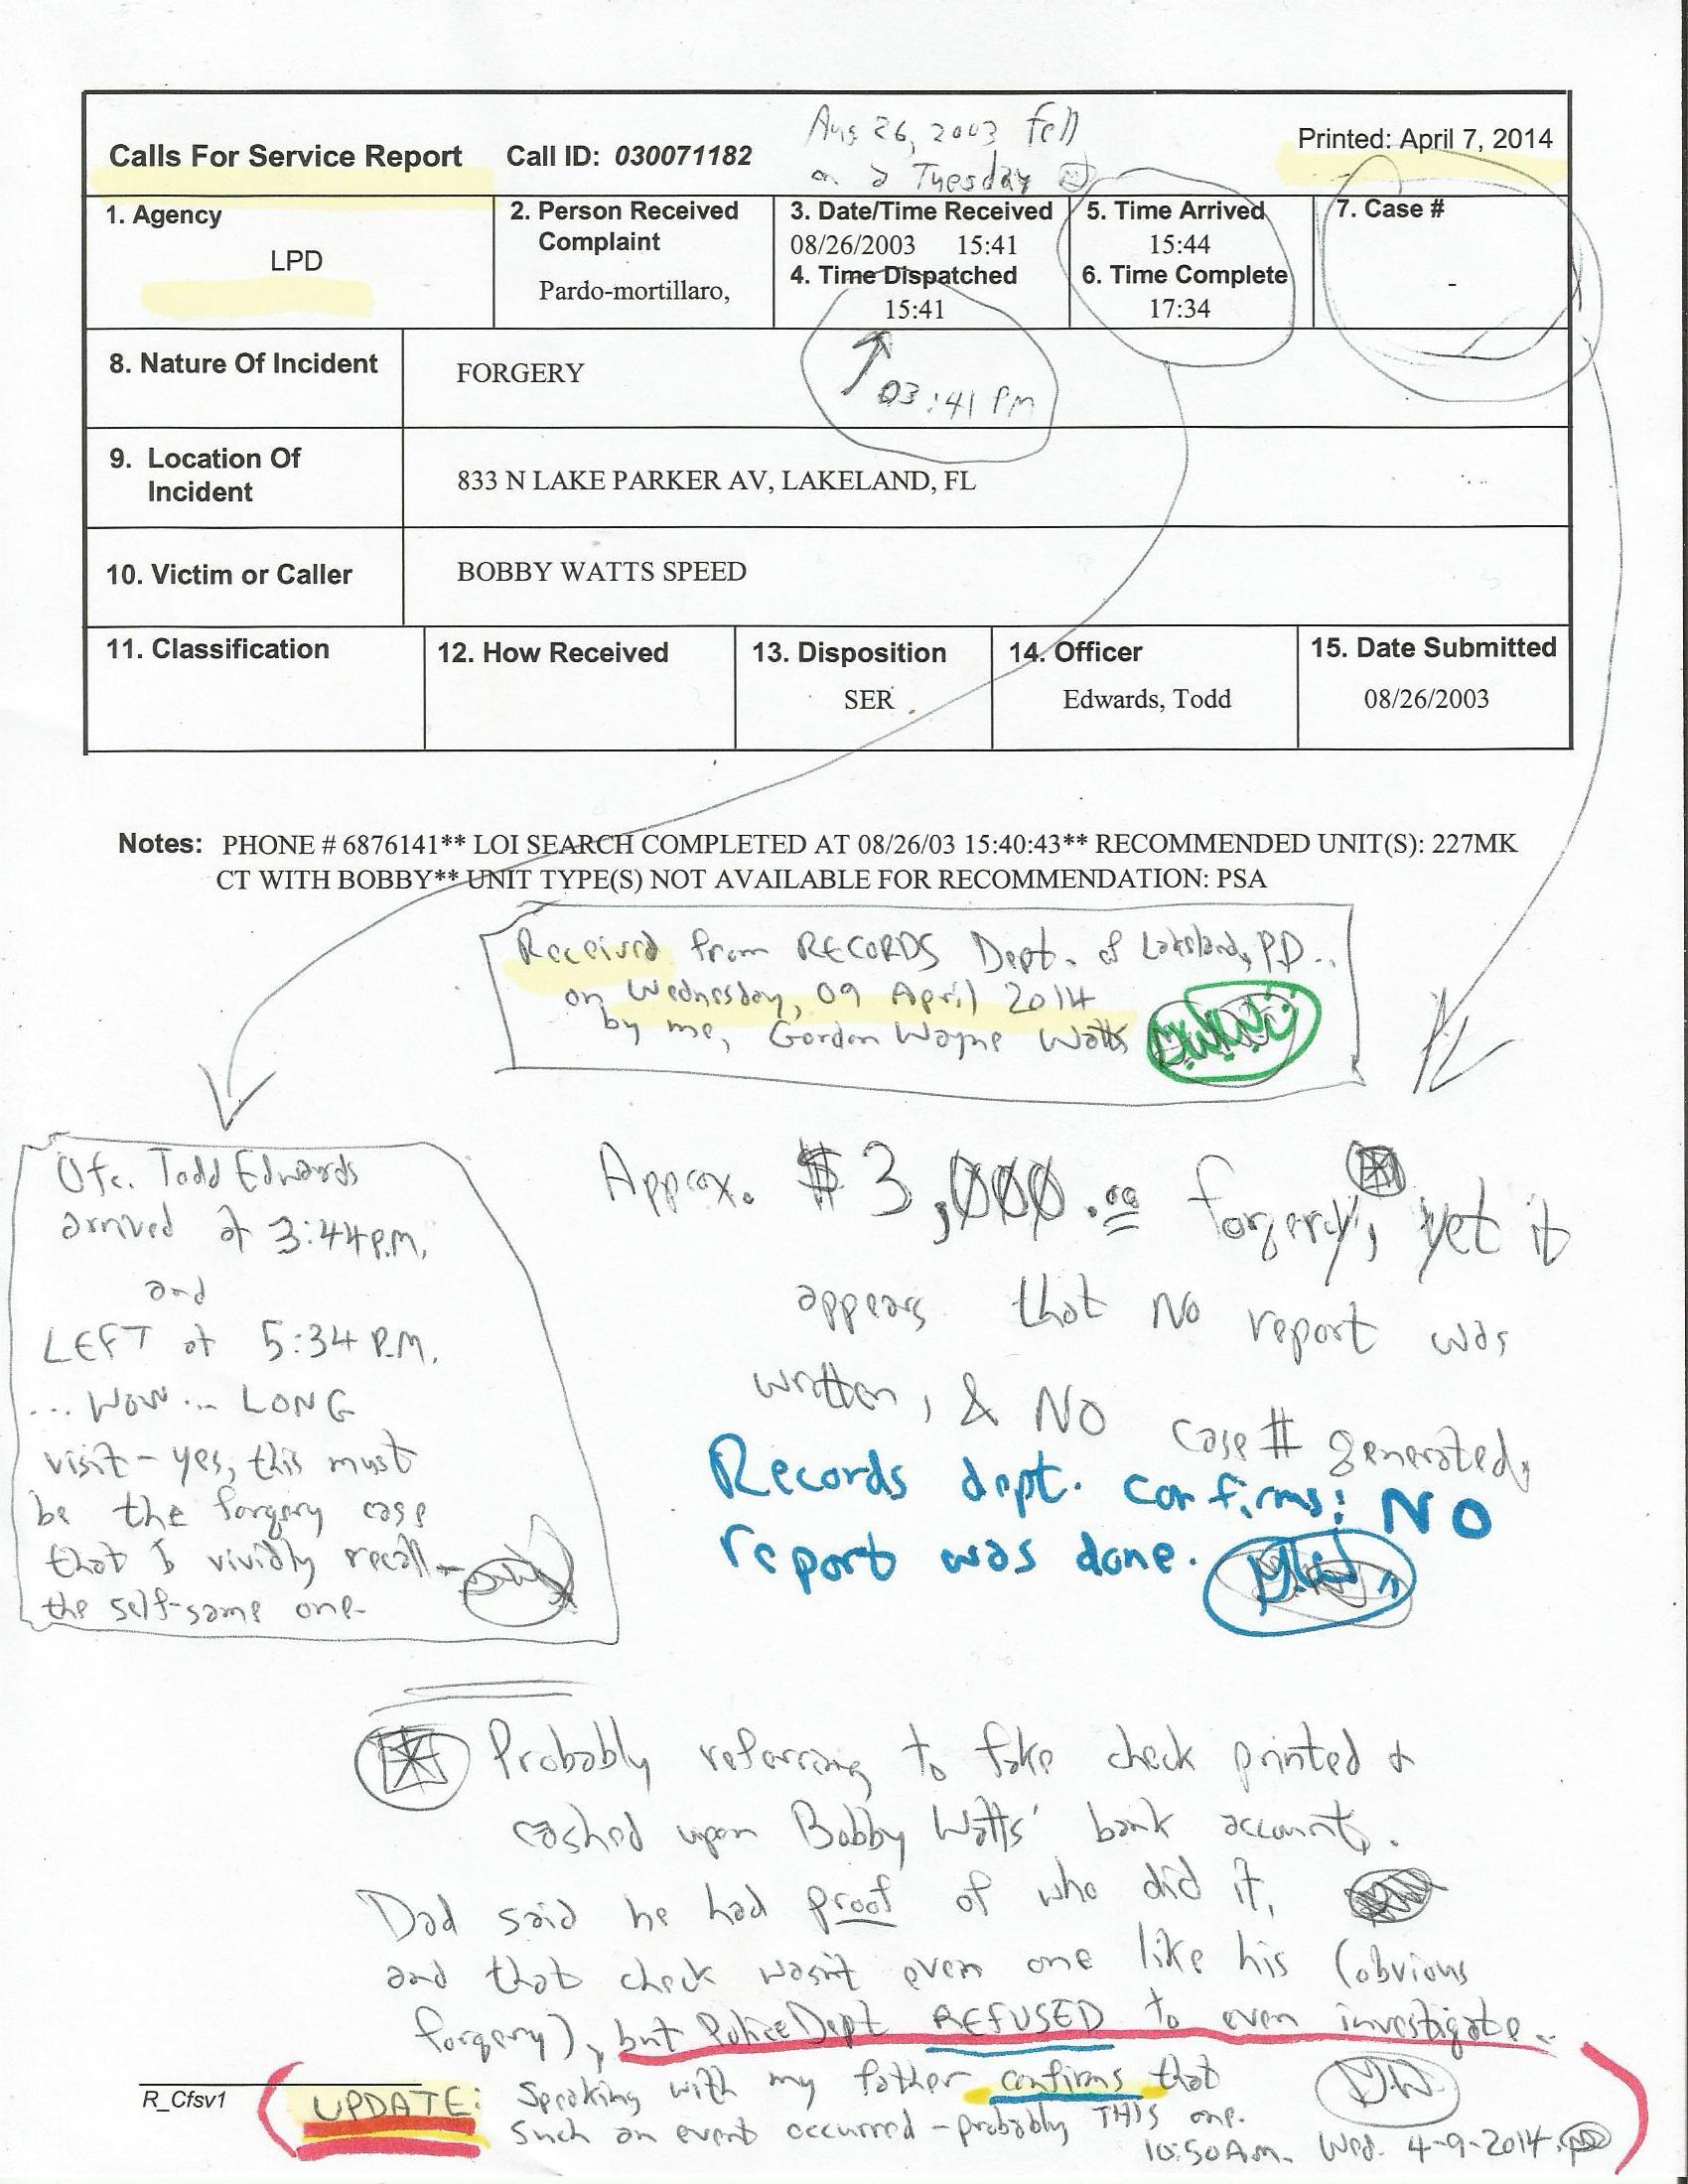 Aug 26, 2003 fell
on a Tuesday
Calls For Service Report Call ID: 030071182 Printed: April 7, 2014
1. Agency
LPD
2. Person Received
Complaint
Pardo-mortillaro,
3. Date/Time Received
08/26/2003 15:41
4. Time Dispatched
15:41
5. Time Arrived
15:44
6. Time Complete
17:34
7. Case #
-
03:41 PM
8. Nature Of Incident FORGERY
9. Location Of
Incident
833 N LAKE PARKER AV, LAKELAND, FL
10. Victim or Caller BOBBY WATTS SPEED
11. Classification
12. How Received
13. Disposition
SER
14. Officer
Edwards, Todd
15. Date Submitted
08/26/2003
Notes: PHONE # 6876141** LOI SEARCH COMPLETED AT 08/26/03 15:40:43** RECOMMENDED UNIT(S): 227MK
CT WITH BOBBY** UNIT TYPE(S) NOT AVAILABLE FOR RECOMMENDATION: PSA
Received from RECORDS Dept. of Lakeland, P.D..
on Wednesday, 09 April 2014
by me, Gordon Wayne Watts
Ofc. Todd Edwards
arrived at 3:44 P.M.
and
LEFT at 5:34 P.M.
... WOW ... LONG
visit - yes, this must
be the forgery case
that I vividly recall -
the self-same one.
Approx. $3,000.00 forgery, yet it
appears that No report was
written, & NO case # generated,
Records dept. confirms: NO
report was done.
Probably referring to fake check printed &
cashed upon Bobby Watts' bank account.
Dad said he had proof of who did it,
and that check wasn't even one like his (obvious
forgery), but Police Dept REFUSED to even investigate.
R_Cfsv1
UPDATE: Speaking with my father confirms that
such an event occurred - probably THIS one.
10:50 AM. Wed. 4-9-2014.